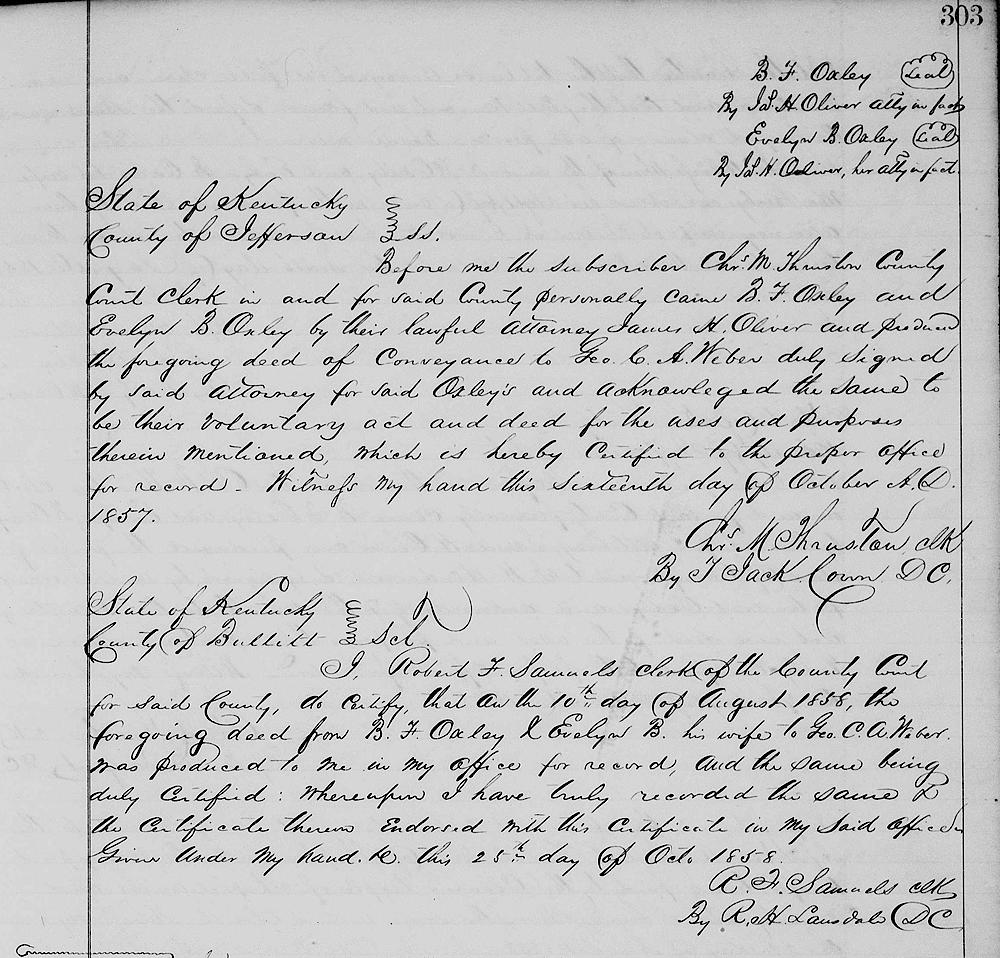 303
B. F. Oxley (Seal)
By Jas. H. Oliver atty in fact
Evelyn B. Oxley (Seal)
By Jas. H. Oliver, her atty in fact.
State of Kentucky
County of Jefferson Sct.
Before me the subscriber Chs. M. Thruston County
Court Clerk in and for said County personally came B. F. Oxley and
Evelyn B. Oxley by their lawful attorney James H. Oliver and produced
the foregoing deed of Conveyance to Geo. C. A. Weber duly signed
by said attorney for said Oxley's and acknowleged the same to
be their voluntary act and deed for the uses and purposes
therein mentioned, which is hereby Certified to the propor office
for record - Witness my hand this Sixteenth day of October A. D.
1857.
Chs. M. Thruston, clk
By T Jack Conn D C.
State of Kentucky
County of Bullitt Sct
I, Robert F. Samuels clerk of the County Court
for said County, do certify, that on the 10th day of August 1858, the
foregoing deed from B. F. Oxley & Evelyn B. his wife to Geo. C. A. Weber.
was produced to me in my office for record, and the same being
duly Certified: Whereupon I have truly recorded the same &
the Certificate thereon Endorsed with this Certificate in my said office
Given under my hand. &c. this 25th day of Octo 1858.
R. F. Samuels clk
By R. H. Lansdale D C